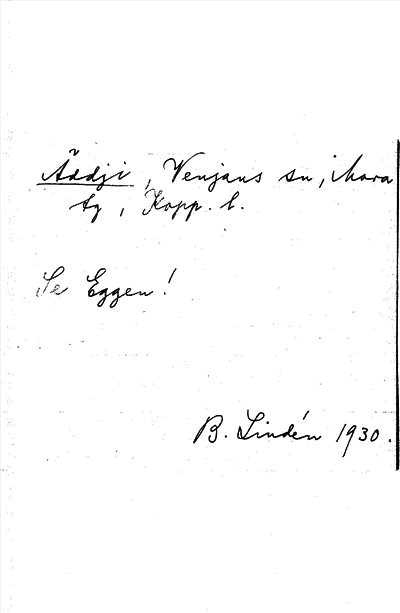 Äddji, Venjans sn, Mora
tg, Kopp. l.
Se Eggen!
B. Lindén 1930.